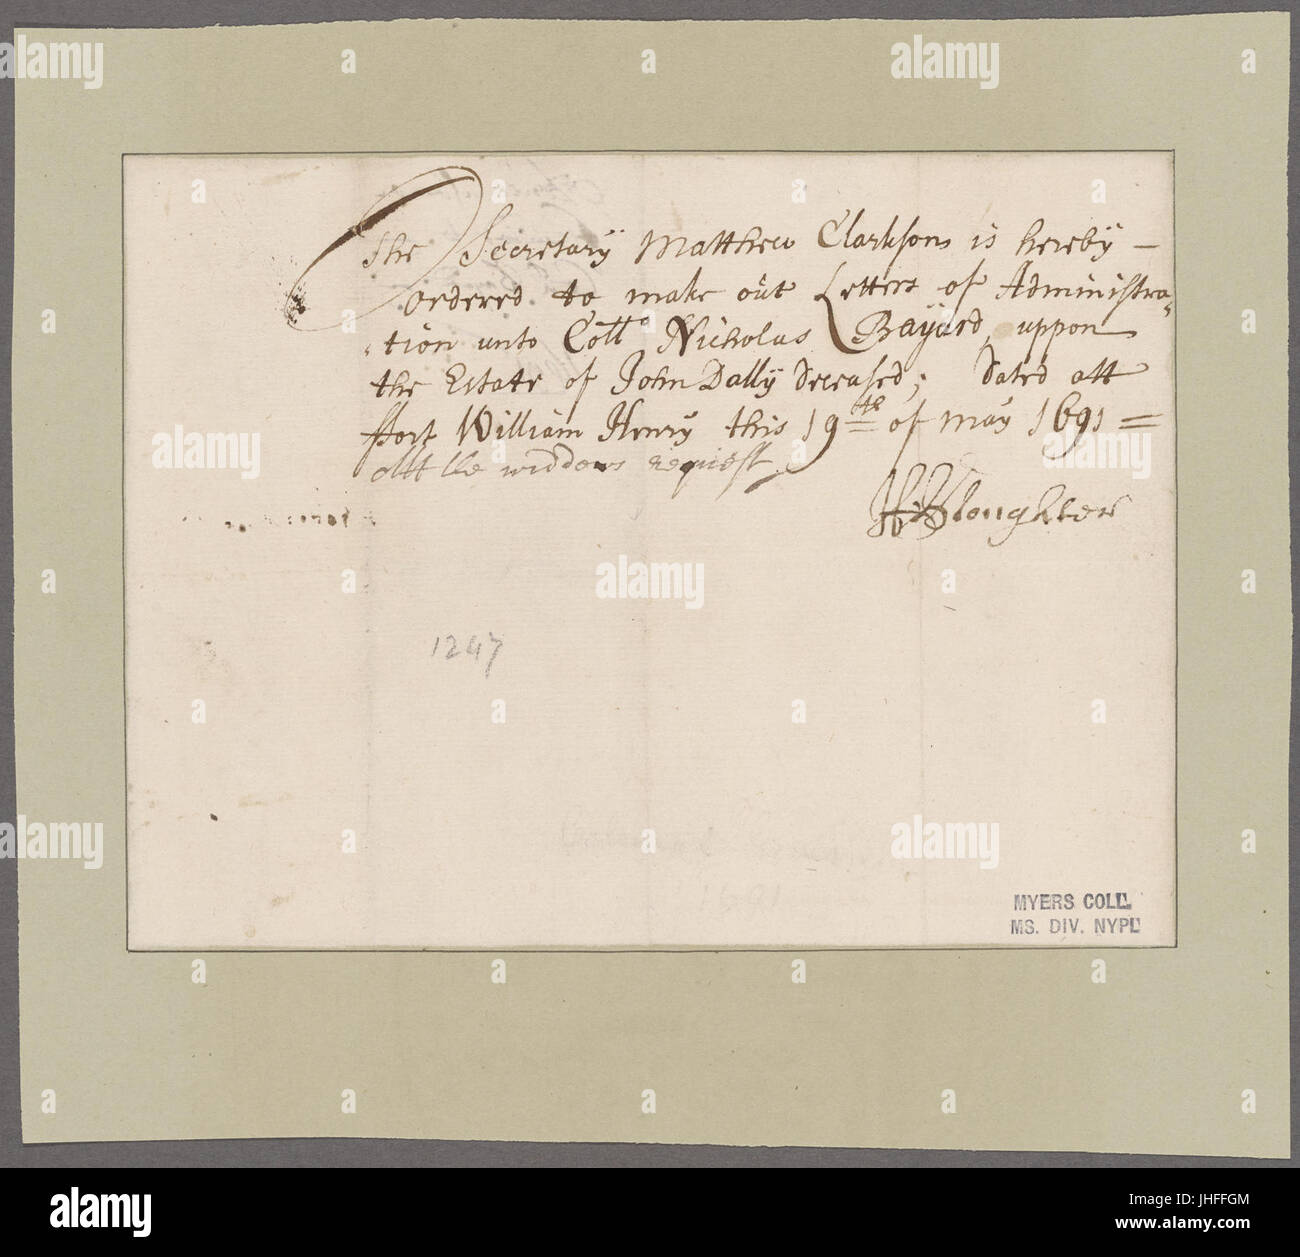 The Secretary Matthew Clarkson is hereby –
ordered to make out Letters of Administra-
-tion unto Coll.o Nicholas Bayard, uppon
the Estate of John Dally deceased; dated att
ffort William Henry this 19th = of may 1691 =
att the widdows request
H Sloughter
1247
1691
MYERS COLL.
MS. DIV. NYPL
alamy
a
alamy stock photo
JHFFGM
www.alamy.com